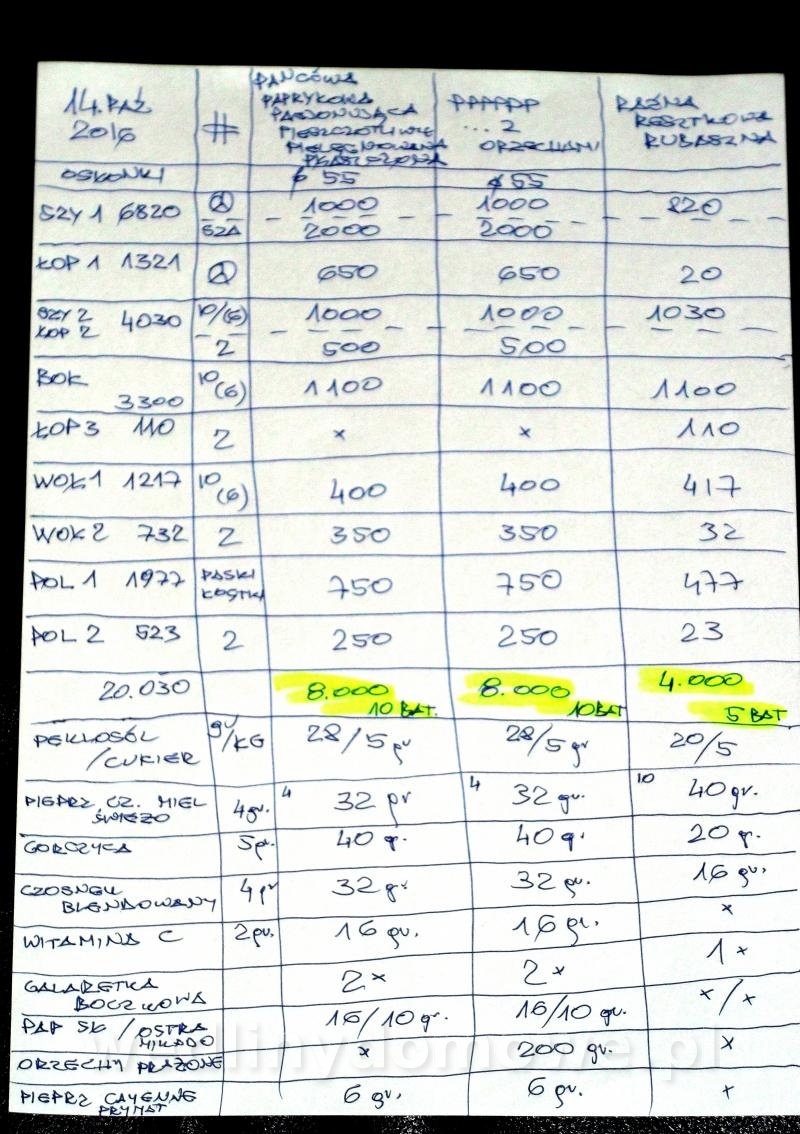 14.PAŹ 2016 # PANCÓWA PAPRYKOWA PPPPPP ... 2 ORZECHAMI RAŹNA RESZTKOWA RUBASZNA
PIESZCZOTLIWIE
OSŁONKI ¢ 55 ¢ 55
SZY 1 6820 1000 1000 820
SZA 2000 2000
ŁOP 1 1321 650 650 20
SZY 2 ŁOP 2 4030 10/(6) 1000 1000 1030
2 500 500
BOK 3300 10 (6) 1100 1100 1100
ŁOP 3 110 2 x x 110
WOŁ 1 1217 10 (6) 400 400 417
WOŁ 2 732 2 350 350 32
POL 1 1977 PASKI KOSTKI 750 750 477
POL 2 523 2 250 250 23
20.030 8.000 10 BAT. 8.000 10 BAT 4.000 5 BAT
PEKLOSÓL /CUKIER gr/KG 28/5 gr 28/5 gr 20/5
PIEPRZ CZ. MIEL ŚWIEŻO 4 gr. 4 32 gr 4 32 gr. 10 40 gr.
GORCZYCA 5 gr. 40 gr. 40 g. 20 gr.
CZOSNEK BLENDOWANY 4 gr 32 gr 32 gr. 16 gr.
WITAMINA C 2 gr. 16 gr. 16 gr. x
GALARETKA BOCZKOWA 2 x 2 x 1 x
PAP SŁ / OSTRA MIKADO 16/10 gr. 16/10 gr. x/x
ORZECHY PRAŻONE x 200 gr. x
PIEPRZ CAYENNE PRYMAT 6 gr. 6 gr. x
wedlinydomowe.pl